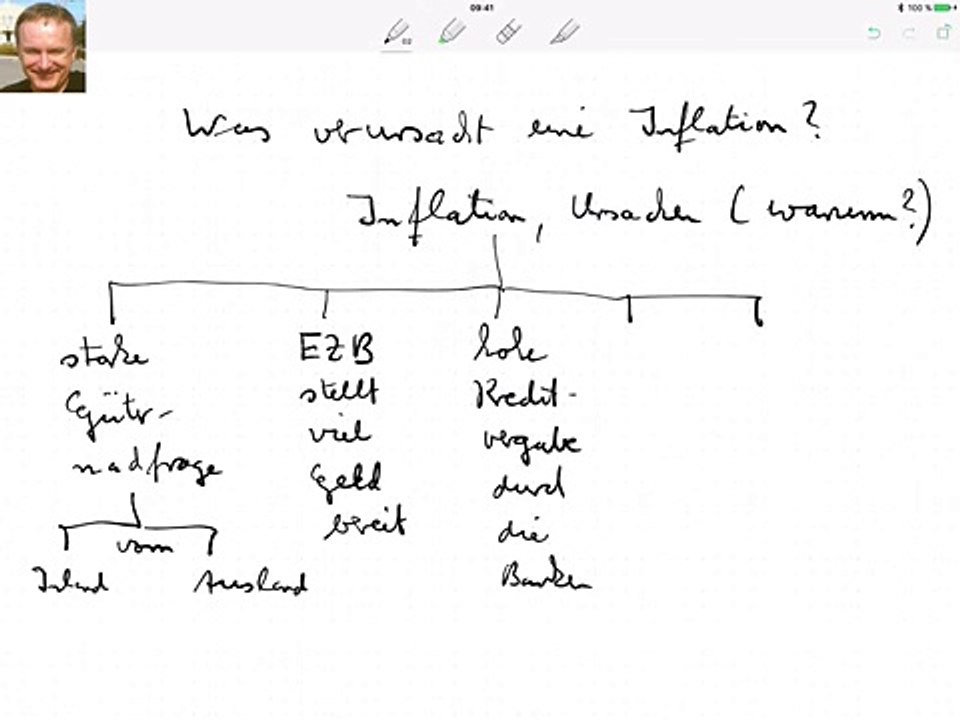 09:41
100 %
02
Was verursacht eine Inflation?
Inflation, Ursachen (warum?)
starke
Güter-
nachfrage
vom
Inland
Ausland
EZB
stellt
viel
Geld
bereit
hohe
Kredit-
vergabe
durch
die
Banken